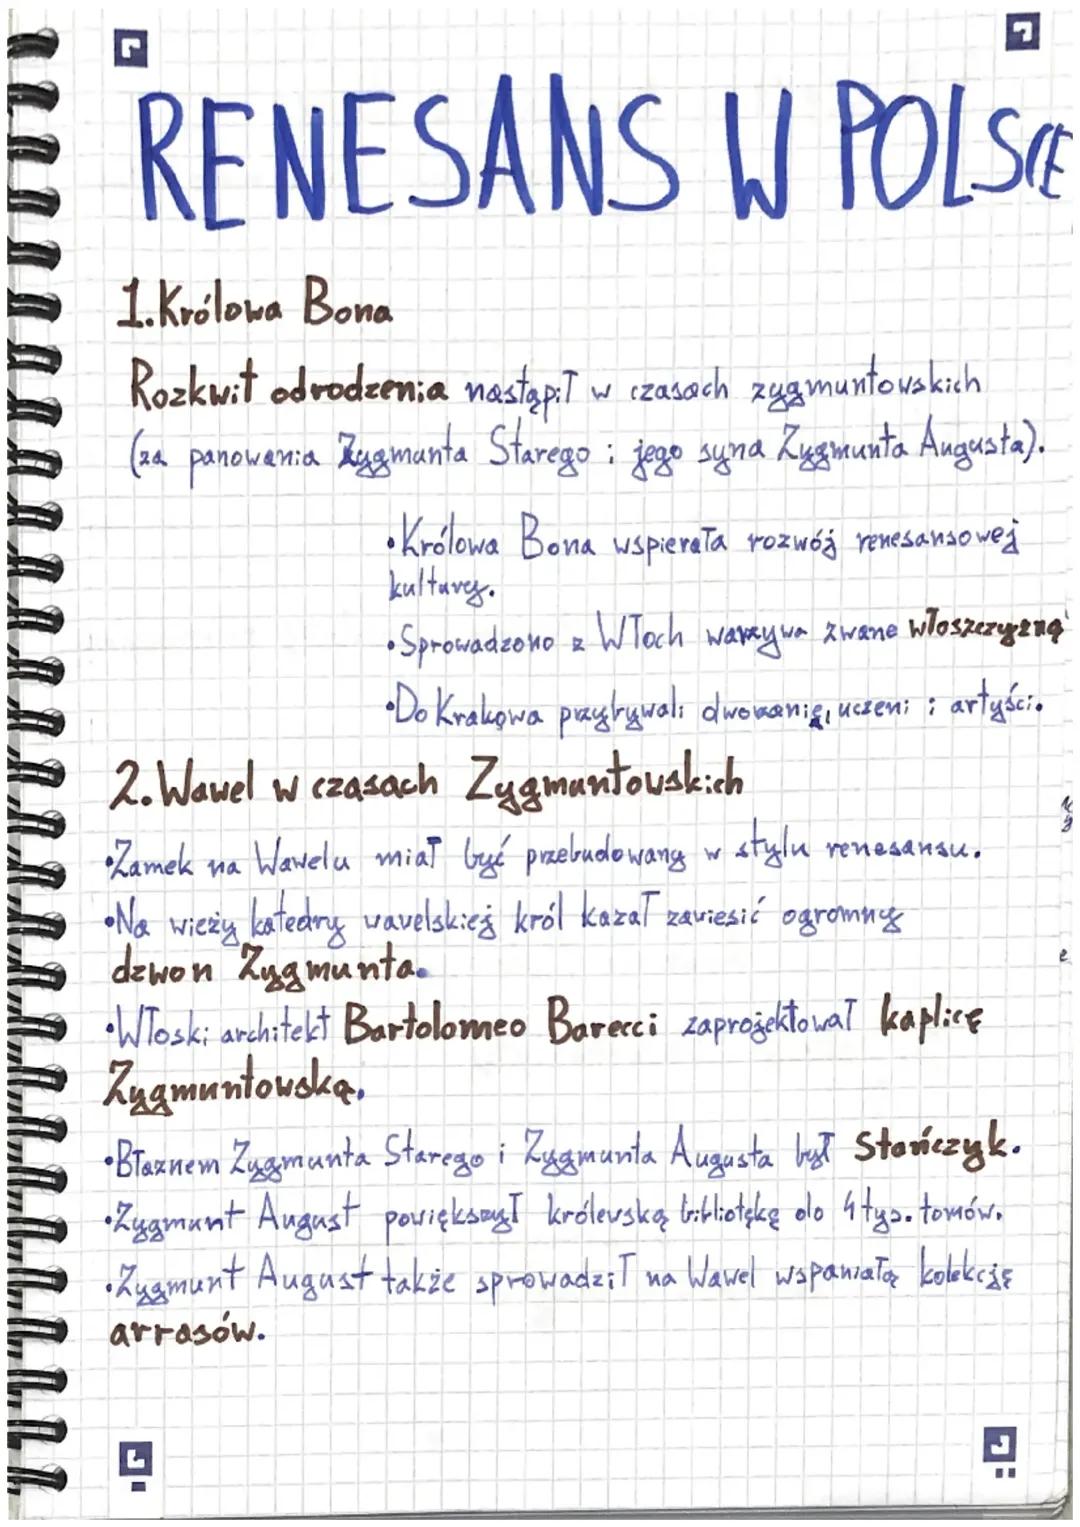 RENESANS W POLSCE
1. Królowa Bona
Rozkwit odrodzenia nastąpił w czasach zygmuntowskich
(za panowania Zygmunta Starego i jego syna Zygmunta Augusta).
•Królowa Bona wspierała rozwój renesansowej
kultury.
•Sprowadzono z Włoch warzywa zwane włoszczyzną
•Do Krakowa przybywali dworzanie, uczeni i artyści.
2. Wawel w czasach Zygmuntowskich
•Zamek na Wawelu miał być przebudowany w stylu renesansu.
•Na wieży katedry wawelskiej król kazał zawiesić ogromny
dzwon Zygmunta.
•Włoski architekt Bartolomeo Barecci zaprojektował kaplicę
Zygmuntowską.
•Błaznem Zygmunta Starego i Zygmunta Augusta był Stańczyk.
•Zygmunt August powiększył królewską bibliotękę do 4 tys. tomów.
•Zygmunt August także sprowadził na Wawel wspaniałą kolekcję
arrasów.